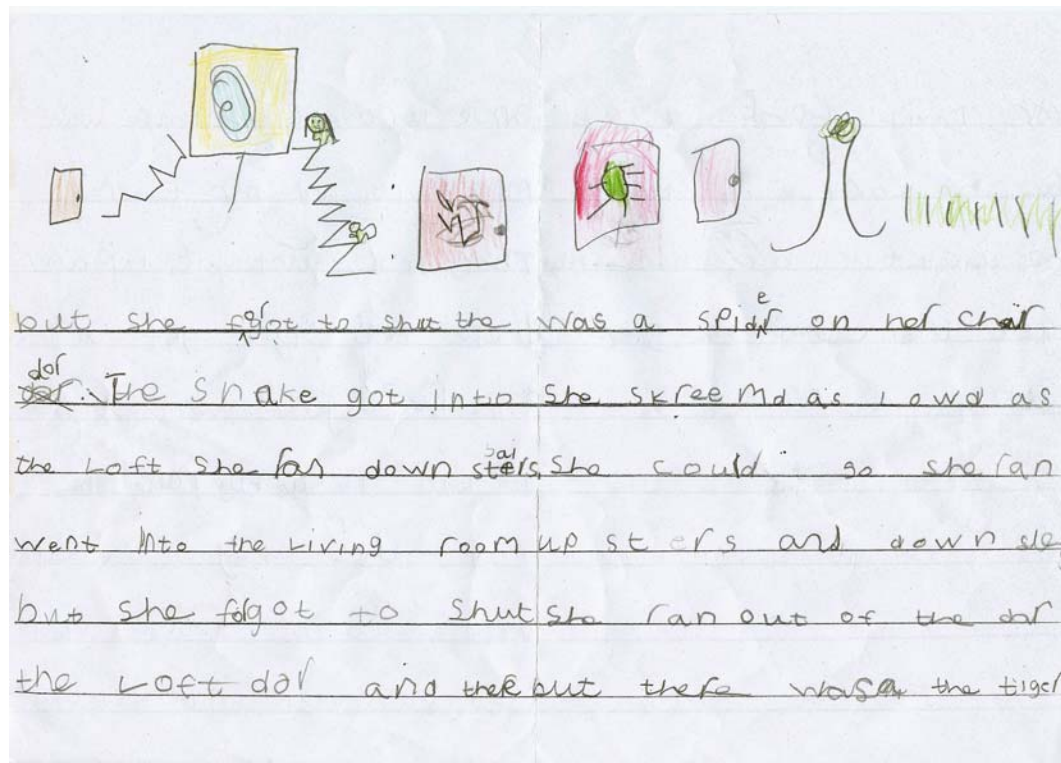 but she forgot to shut the
dor. The snake got into
the Loft she ran down stairs
went into the Living room
but she forgot to shut
the Loft dor and there
was a spider on her chair
she skreemd as Lowd as
she could go she ran
up sters and down
she ran out of the dor
but there was a the tiger